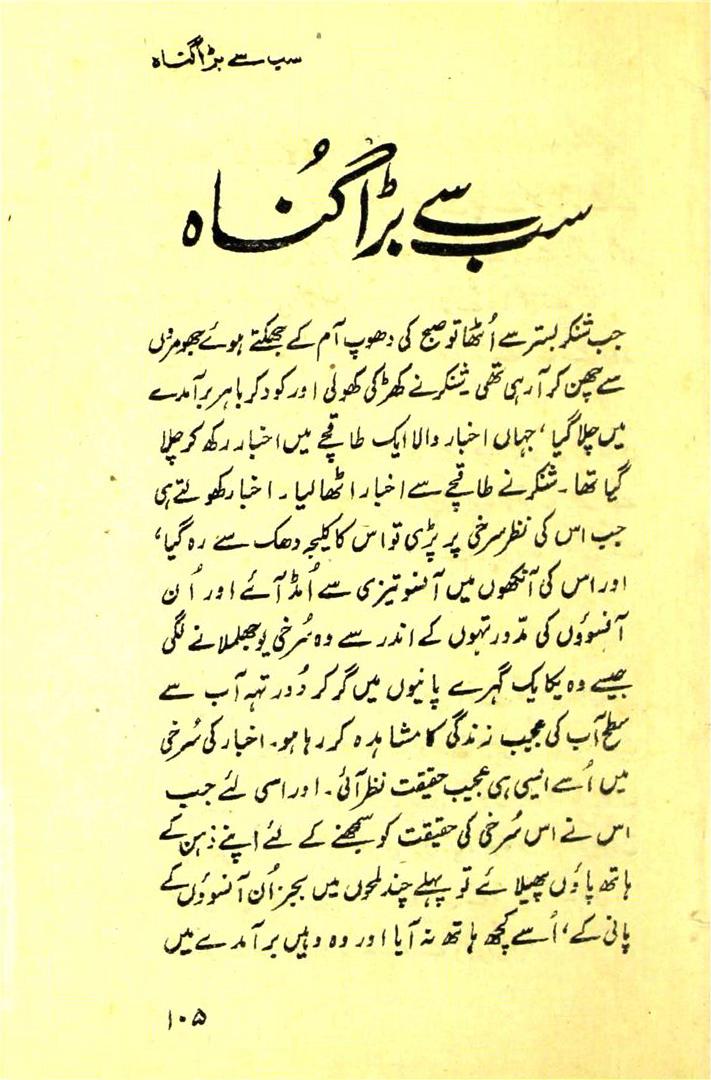 سب سے بڑا گناہ
سب سے بڑا گُناہ
جب شنکر بستر سے اُٹھا تو صبح کی دھوپ آم کے جھکتے ہوئے جھومروں
سے چھن کر آ رہی تھی۔ شنکر نے کھڑکی کھولی اور کود کر باہر برآمدے
میں چلا گیا، جہاں اخبار والا ایک طاقچے میں اخبار رکھ کر چلا
گیا تھا۔ شنکر نے طاقچے سے اخبار اٹھا لیا۔ اخبار کھولتے ہی
جب اس کی نظر سرخی پر پڑی تو اس کا کلیجہ دھک سے رہ گیا،
اور اس کی آنکھوں میں آنسو تیزی سے اُمڈ آئے اور اُن
آنسوؤں کی مدّور تہوں کے اندر سے وہ سُرخی یوں جھلملانے لگی
جیسے وہ یکایک گہرے پانیوں میں گر کر دُور تہہ آب سے
سطح آب کی عجیب زندگی کا مشاہدہ کر رہا ہو۔ اخبار کی سُرخی
میں اُسے ایسی ہی عجیب حقیقت نظر آئی۔ اور اسی لئے جب
اس نے اس سُرخی کی حقیقت کو سمجھنے کے لئے اپنے ذہن کے
ہاتھ پاؤں پھیلائے تو پہلے چند لمحوں میں بجز اُن آنسوؤں کے
پانی کے، اُسے کچھ ہاتھ نہ آیا اور وہ وہیں برآمدے میں
۱۰۵